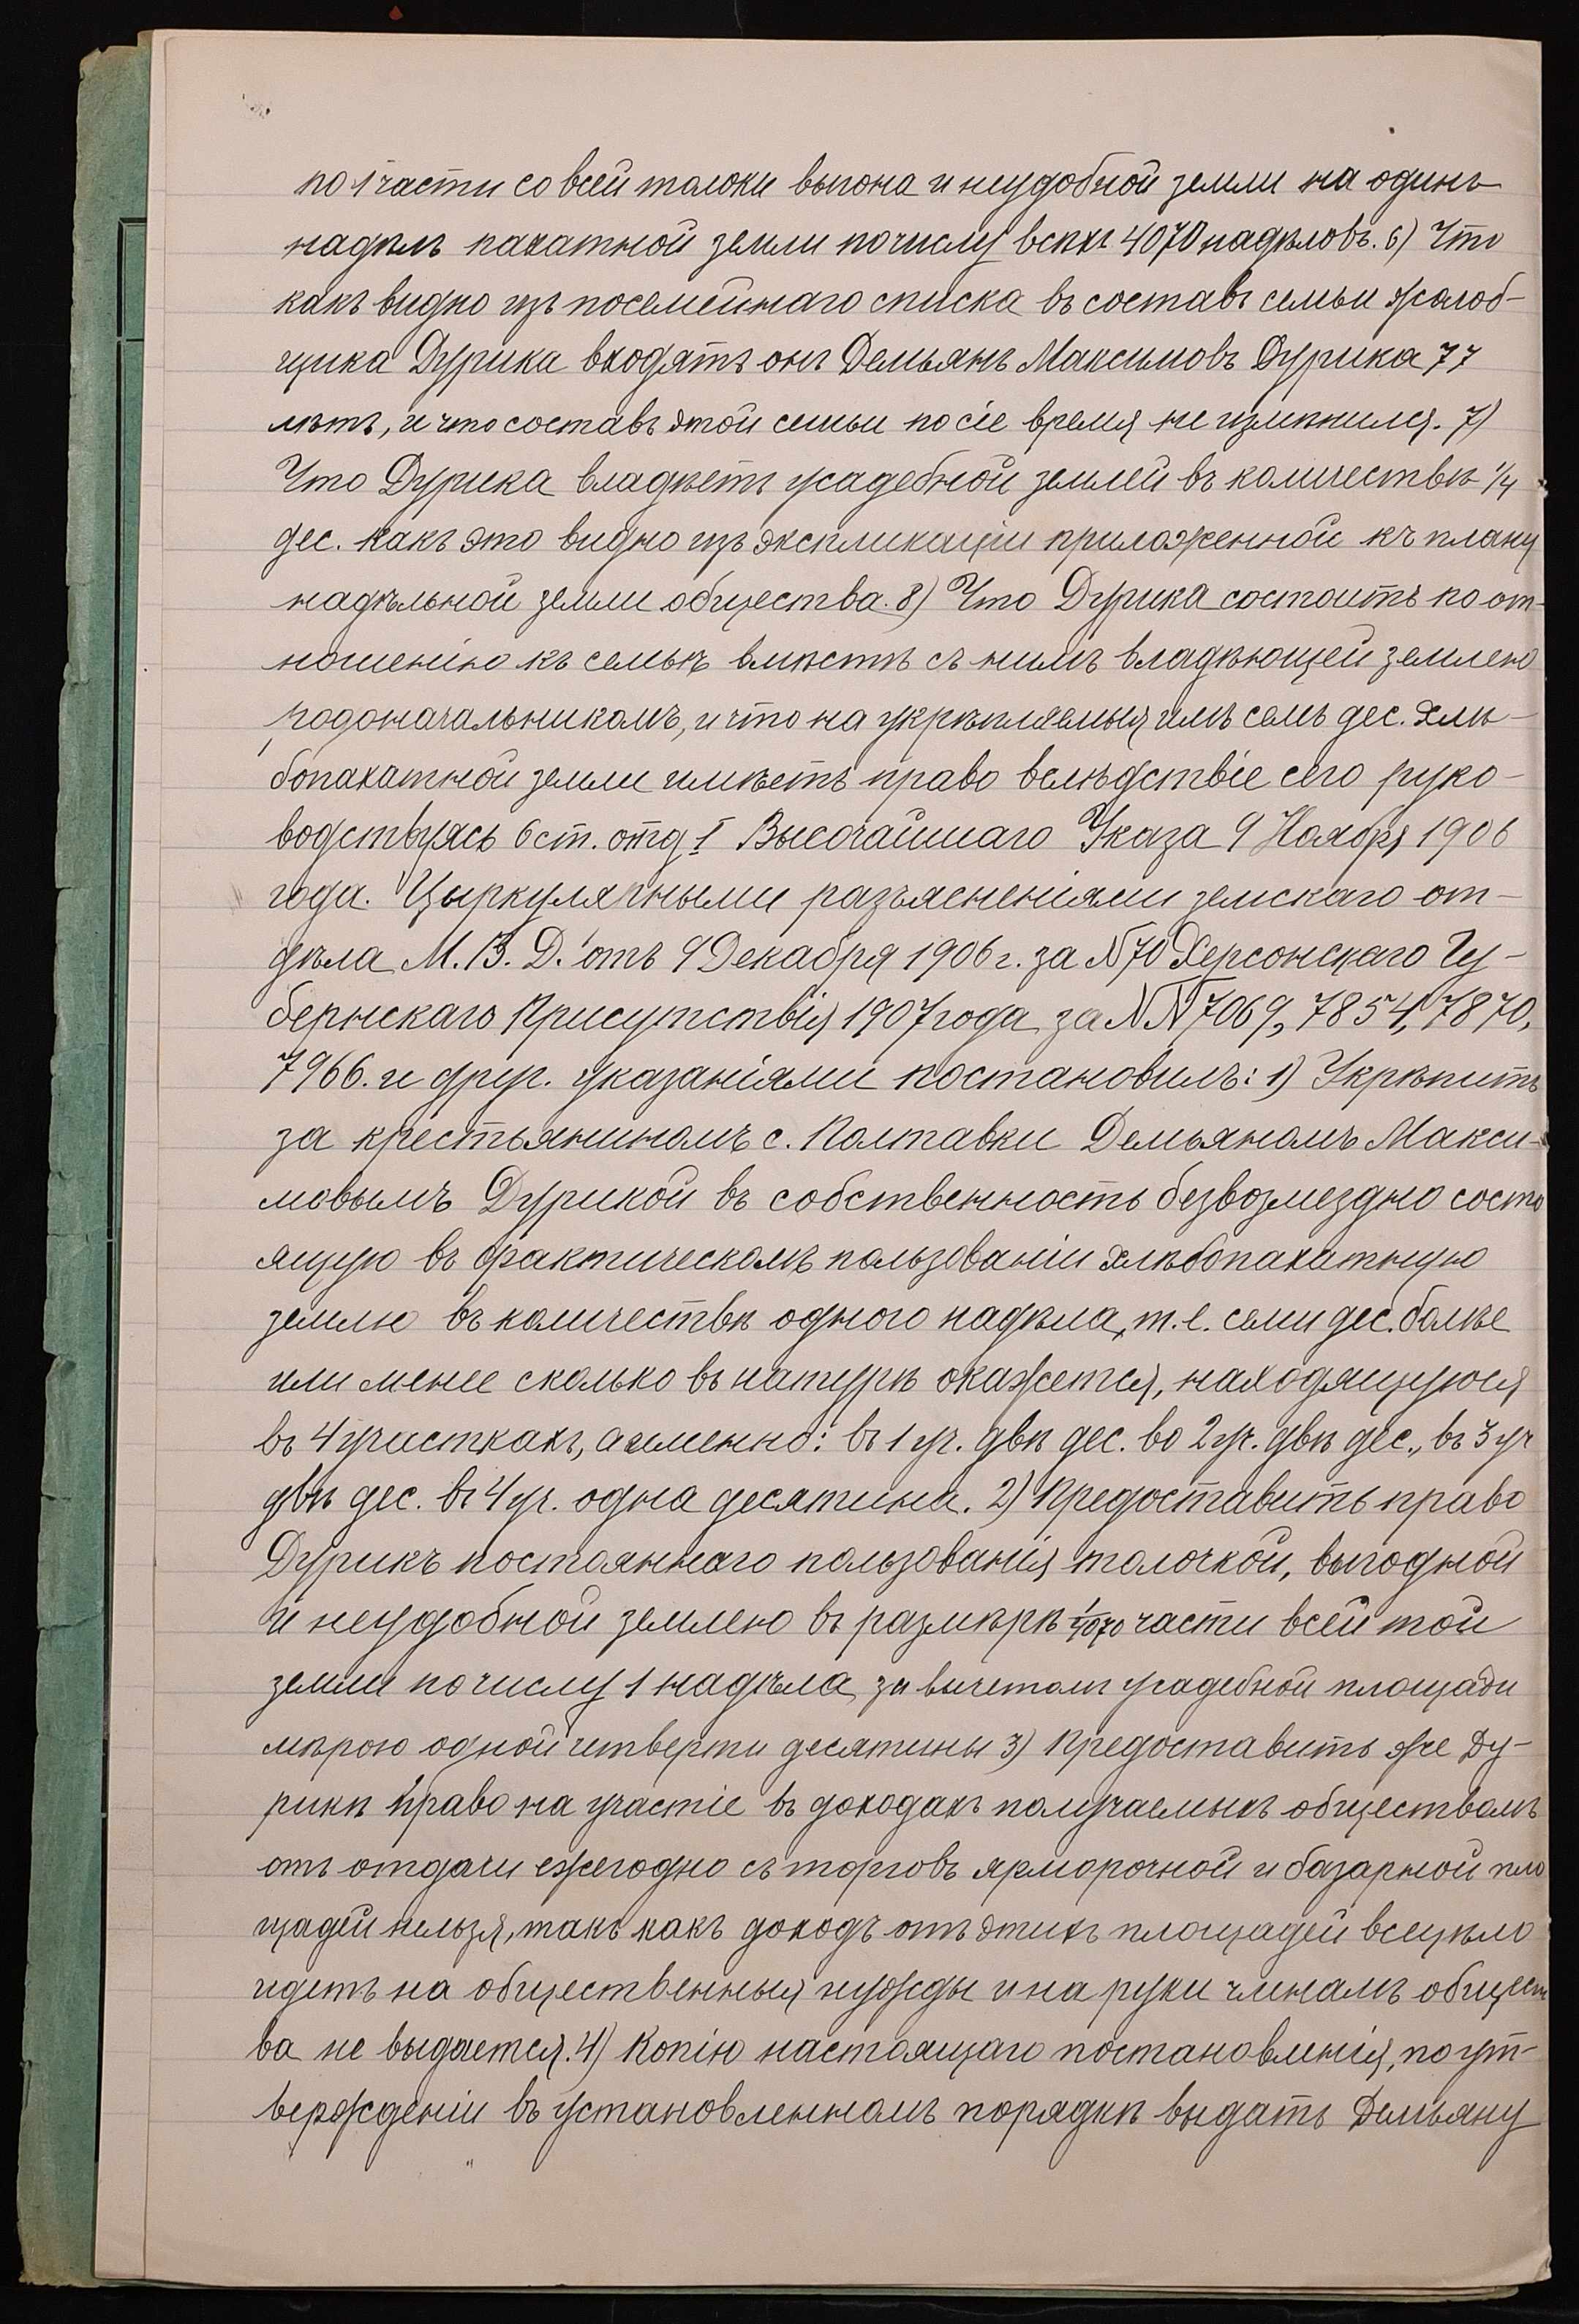 по 1 части со всей толоки выгона и неудобной земли на одинъ
надѣлъ пахатной земли по числу всѣхъ 4070 надѣловъ. 6) Что
какъ видно изъ посемейнаго списка въ составъ семьи жалоб-
щика Дурика входятъ онъ Демьянъ Максимовъ Дурика 77
лѣтъ, и что составъ этой семьи по сіе время не измѣнился. 7)
Что Дурика владѣетъ усадебной землей въ количествѣ 1/4
дес. какъ это видно изъ экспликаціи приложенной къ плану
надѣльной земли общества. 8) Что Дурика состоитъ по от-
ношенію къ семьѣ вмѣстѣ съ нимъ владѣющей землею
родоначальникомъ, и что на укрѣпляемыя имъ семь дес. хлѣ-
бопахатной земли имѣетъ право вслѣдствіе сего руко-
водствуясь 6 ст. отд I Высочайшаго Указа 9 Ноября 1906
года. Цыркулярными разъясненіями земскаго от-
дѣла М. В. Д. отъ 9 Декабря 1906 г. за №70 Херсонскаго Гу-
бернскаго Присутствія 1907 года за №№ 7069, 7854, 7870,
7966. и друг. указаніями постановилъ: 1) Укрѣпить
за крестьяниномъ с. Полтавки Демьяномъ Макси-
мовымъ Дурикой въ собственность безвозмездно состо
ящую въ фактическомъ пользованіи хлѣбопахатную
землю въ количествѣ одного надѣла, т. е. семи дес. болѣе
или менее сколько въ натурѣ окажется, находящуюся
въ 4 участкахъ, а именно: въ 1 уч. двѣ дес. во 2 уч. двѣ дес., въ 3 уч
двѣ дес. въ 4 уч. одна десятина. 2) Предоставить право
Дурикѣ постояннаго пользованія толочной, выгодной
и неудобной землею въ размѣрѣ 1/4070 части всей той
земли по числу 1 надѣла за вычетомъ усадебной площади
мѣрою одной четверти десятины 3) Предоставить же Ду-
рикѣ право на участіе въ доходахъ получаемыхъ обществомъ
отъ отдачи ежегодно съ торговъ ярморочной и базарной пло
щадей нельзя, такъ какъ доходъ отъ этихъ площадей всецѣло
идетъ на общественныя нужды и на руки членамъ общест
ва не выдается. 4) Копію настоящаго постановленія, по ут-
вержденіи въ установленномъ порядкѣ выдать Демьяну